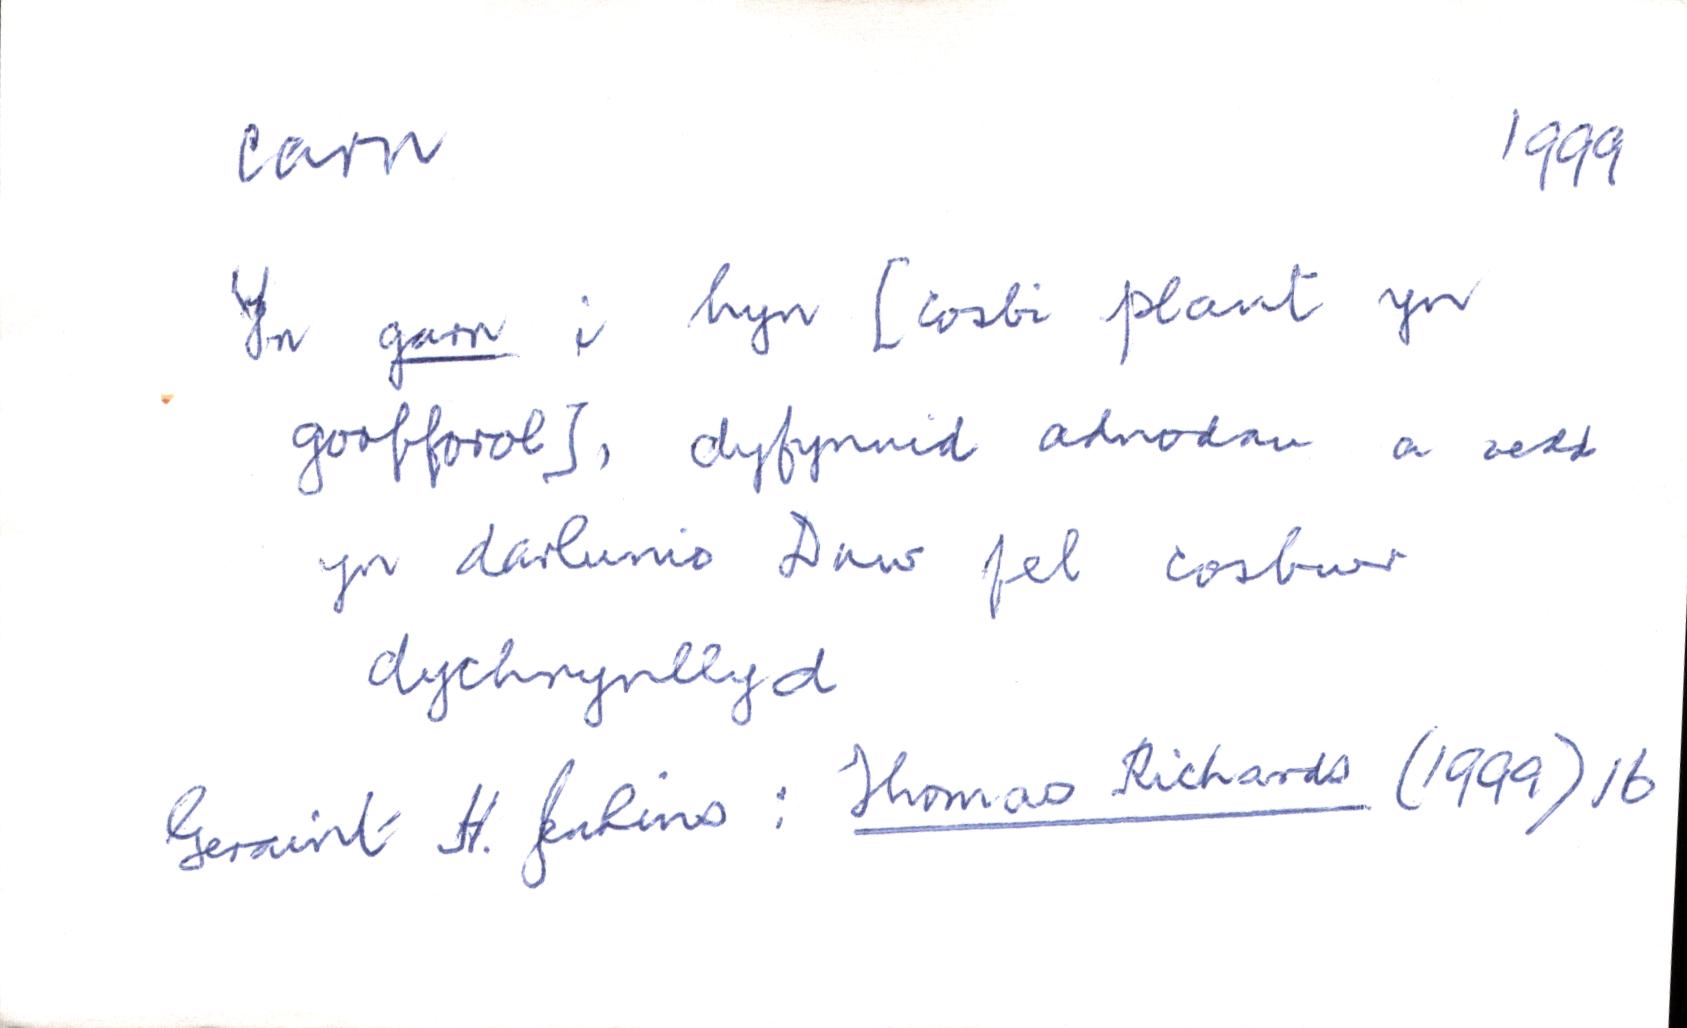 carn 1999
Yn garn i hyn [cosbi plant yn
gorfforol], dyfynnid adnodau a oedd
yn darlunio Duw fel cosbwr
dychrynllyd
Geraint H. Jenkins : Thomas Richards (1999) 16